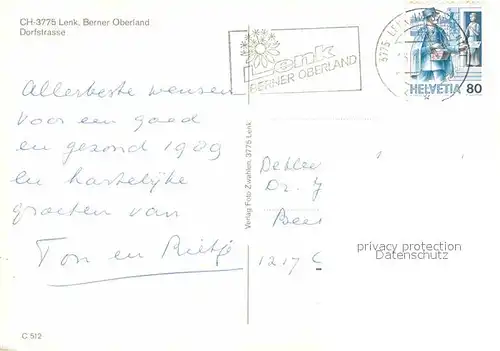 CH-3775 Lenk, Berner Oberland
Dorfstrasse
Lenk
BERNER OBERLAND
3775 LENK
HELVETIA 80
Allerbeste wensen
voor een goed
en gezond 1989
en hartelijke
groeten van
Ton en Rietje
Verlag Foto Zwahlen, 3775 Lenk
Dr. J
1217 C
privacy protection
Datenschutz
C 512